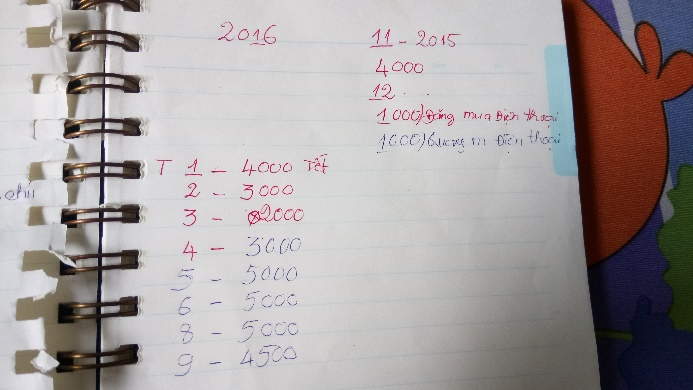 2016
11 - 2015
4000
12 ..
1000) Đăng mua Điện thoại
1000) Gương m Điện thoại
T 1 - 4000 Tết
2 - 3000
3 - 2000
4 - 3000
5 - 5000
6 - 5000
8 - 5000
9 - 4500